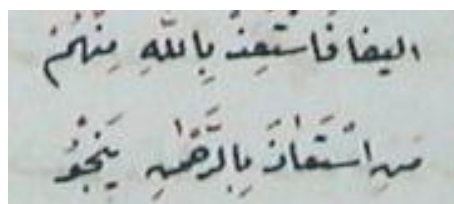 اليضا فَاسْتَعِذْ بِاللَّهِ مِنْهُمْ
مَنِ اسْتَعَاذَ بِالرَّحْمٰنِ يَنْجُو